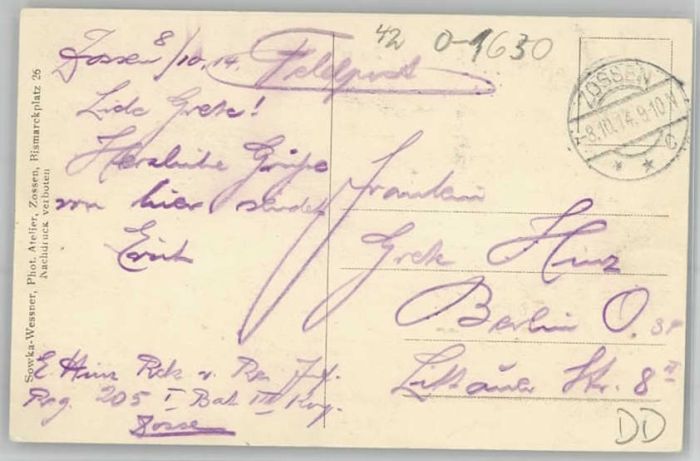 Zossen 8/10.14.
Feldpost
Liebe Grete!
Herzliche Grüße
von hier sendet
Erich
E. Hinz Rek. v. Res. Inf.
Reg. 205 I Bat. III Kog.
Zossen
Fräulein
Grete Hinz
Berlin O. 34
Littauer Str. 8
42 0-1630
ZOSSEN
-8.10.14.9-10 N
* * C
DD
Sowka-Wessner, Phot. Atelier, Zossen, Bismarckplatz 26
Nachdruck verboten